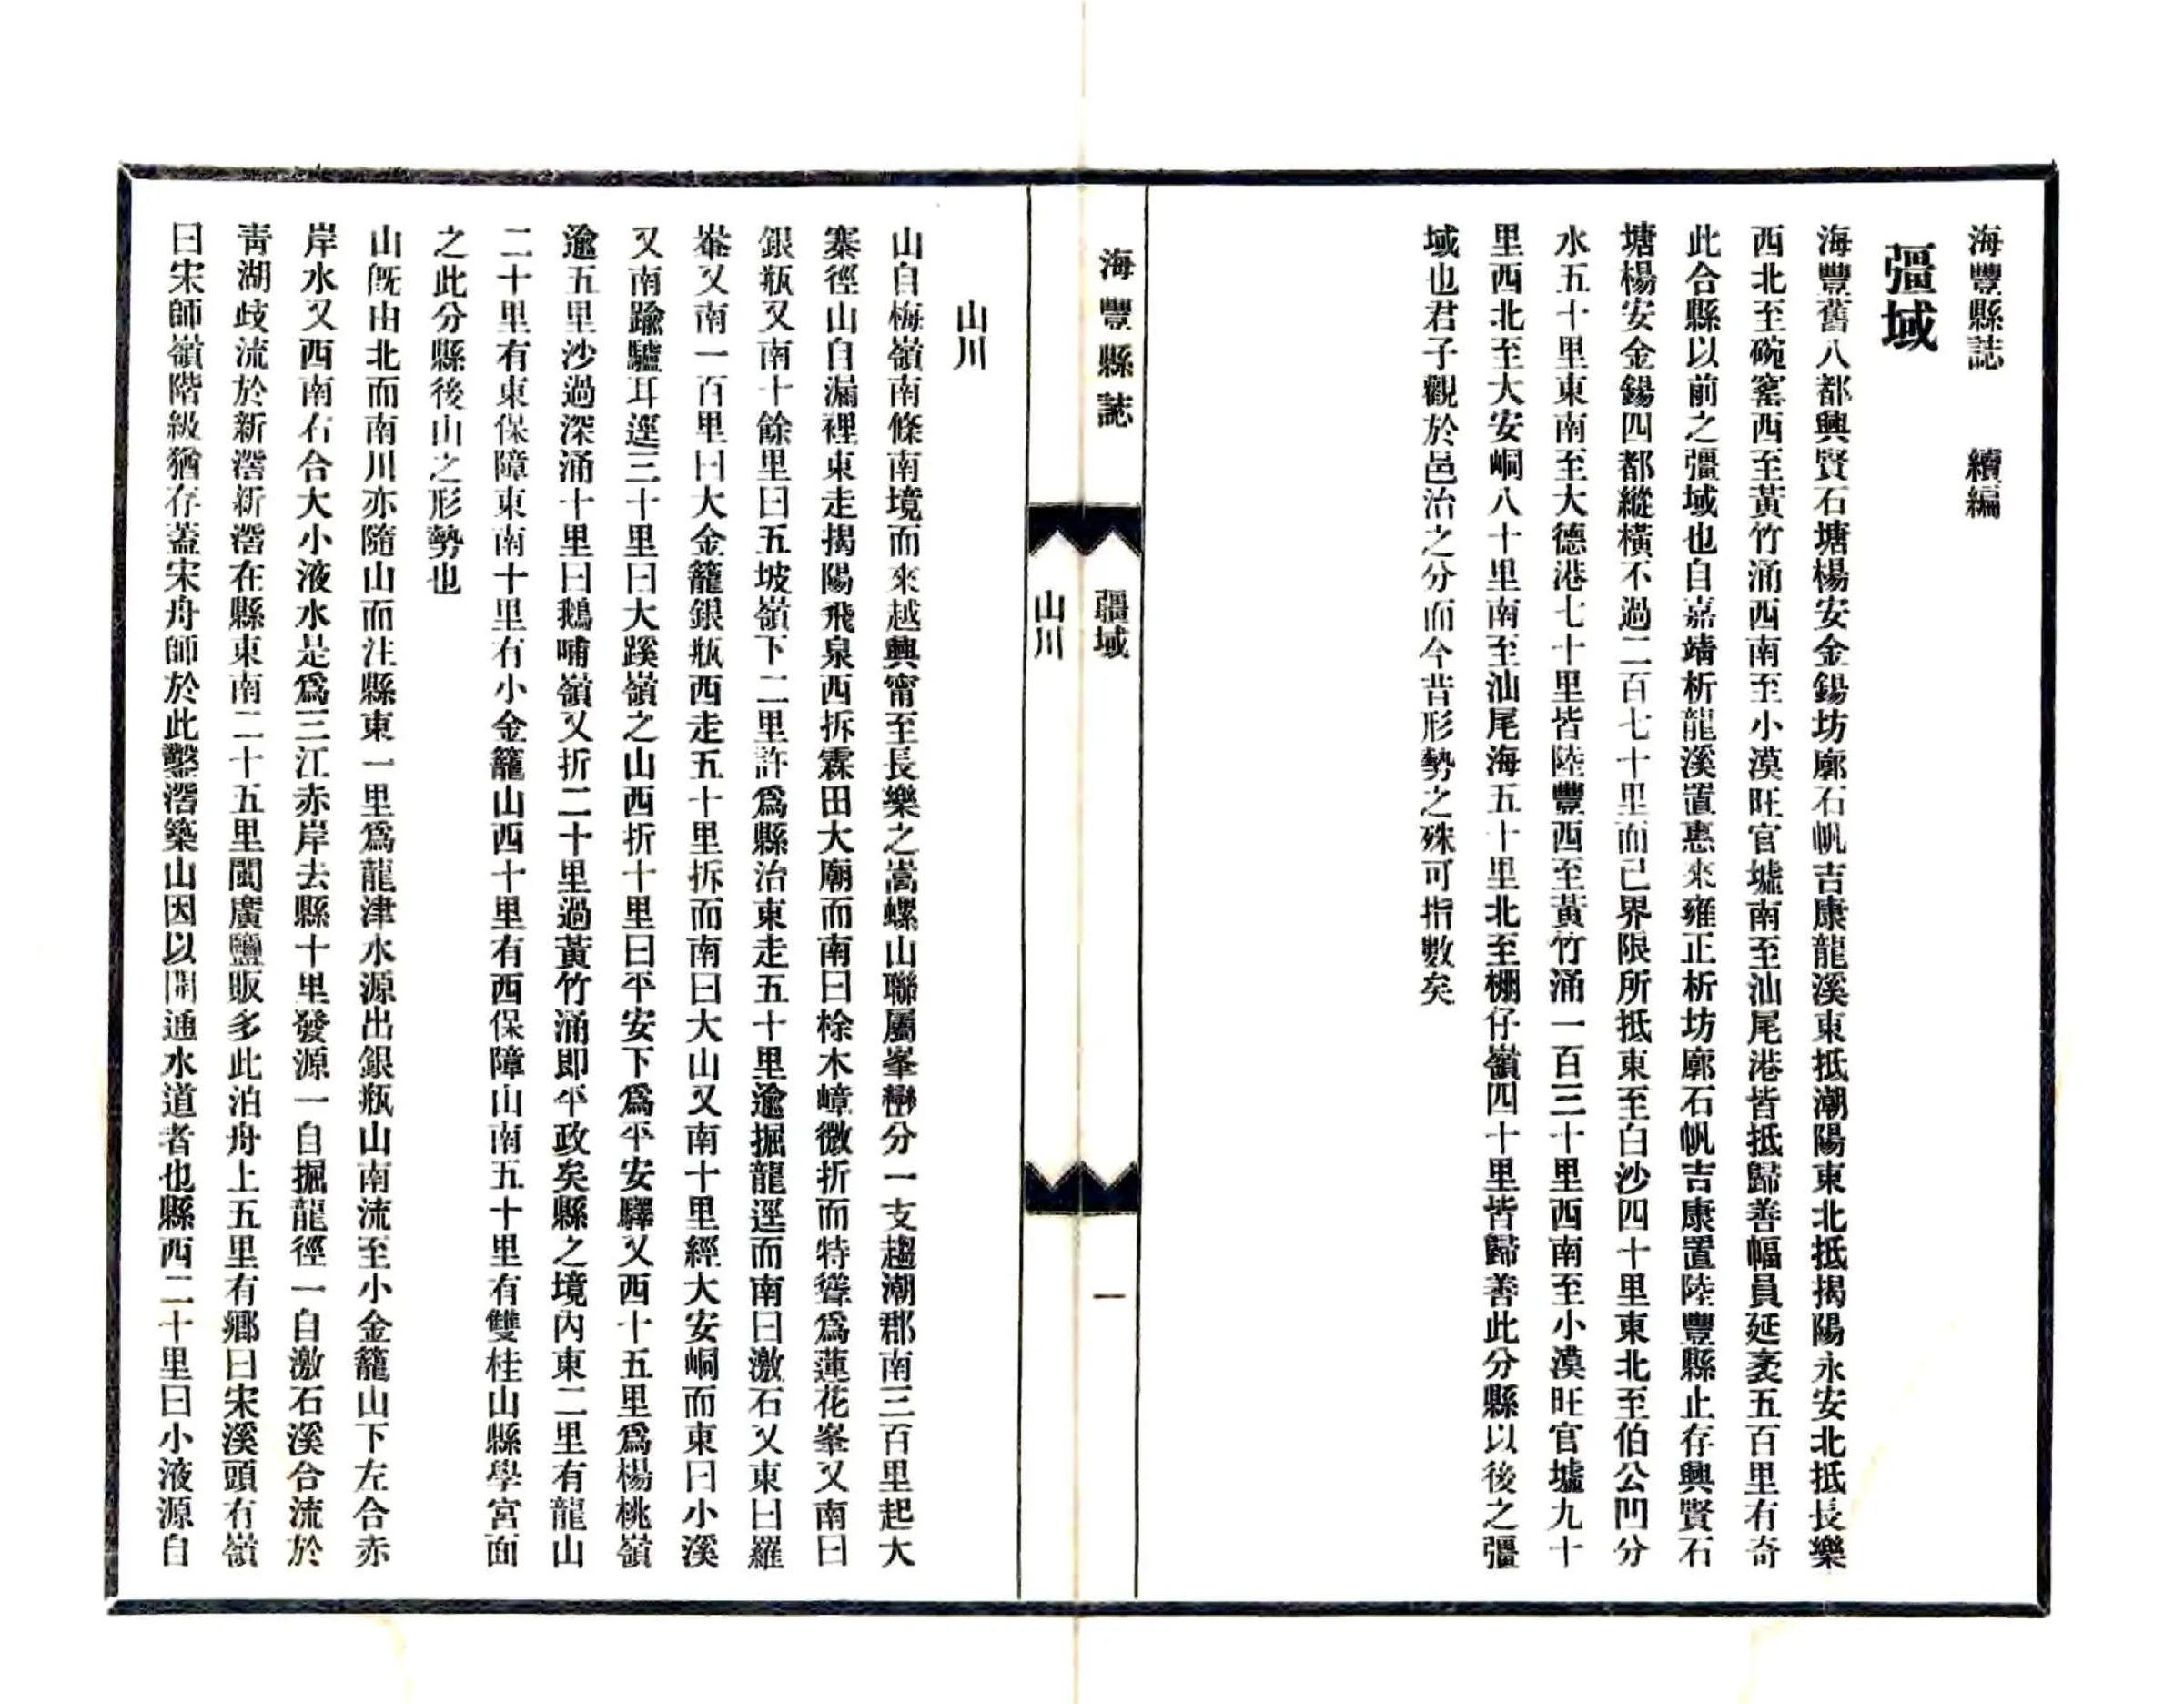 海豐縣誌　續編
疆域
海豐舊八都興賢石塘楊安金錫坊廓石帆吉康龍溪東抵潮陽東北抵揭陽永安北抵長樂
西北至碗窰西至黃竹涌西南至小漠旺官墟南至汕尾港皆抵歸善幅員延袤五百里有奇
此合縣以前之彊域也自嘉靖析龍溪置惠來雍正析坊廓石帆吉康置陸豐縣止存興賢石
塘楊安金錫四都縱橫不過二百七十里而已界限所抵東至白沙四十里東北至伯公凹分
水五十里東南至大德港七十里皆陸豐西至黃竹涌一百三十里西南至小漠旺官墟九十
里西北至大安峒八十里南至汕尾海五十里北至棚仔嶺四十里皆歸善此分縣以後之彊
域也君子觀於邑治之分而今昔形勢之殊可指數矣
海豐縣誌
疆域
山川
一
山川
山自梅嶺南條南境而來越興甯至長樂之嵩螺山聯屬峯巒分一支趨潮郡南三百里起大
寨徑山自漏裡東走揭陽飛泉西拆霖田大廟而南曰桧木嶂微折而特聳爲蓮花峯又南曰
銀瓶又南十餘里曰五坡嶺下二里許爲縣治東走五十里逾掘龍逕而南曰激石又東曰羅
輋又南一百里曰大金籠銀瓶西走五十里拆而南曰大山又南十里經大安峒而東曰小溪
又南踰驢耳逕三十里曰大蹊嶺之山西折十里曰平安下爲平安驛又西十五里爲楊桃嶺
逾五里沙過深涌十里曰鵝哺嶺又折二十里過黃竹涌即平政矣縣之境內東二里有龍山
二十里有東保障東南十里有小金籠山西十里有西保障山南五十里有雙桂山縣學宮面
之此分縣後山之形勢也
山旣由北而南川亦隨山而注縣東一里爲龍津水源出銀瓶山南流至小金籠山下左合赤
岸水又西南右合大小液水是爲三江赤岸去縣十里發源一自掘龍徑一自激石溪合流於
靑湖歧流於新㵯新㵯在縣東南二十五里閩廣鹽販多此泊舟上五里有鄉曰宋溪頭有嶺
曰宋師嶺階級猶存蓋宋舟師於此鑿㵯築山因以開通水道者也縣西二十里曰小液源自